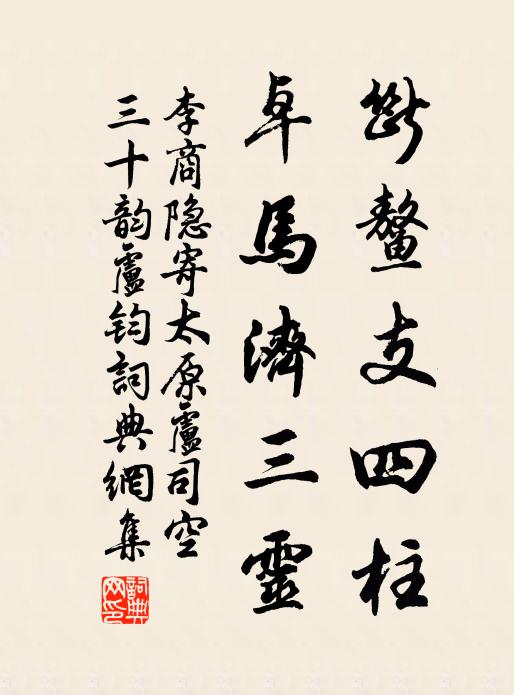 斷鼇支四柱
卓馬濟三靈
李商隐寄太原盧司空
三十韵盧鈞詞典網集
詞典网印